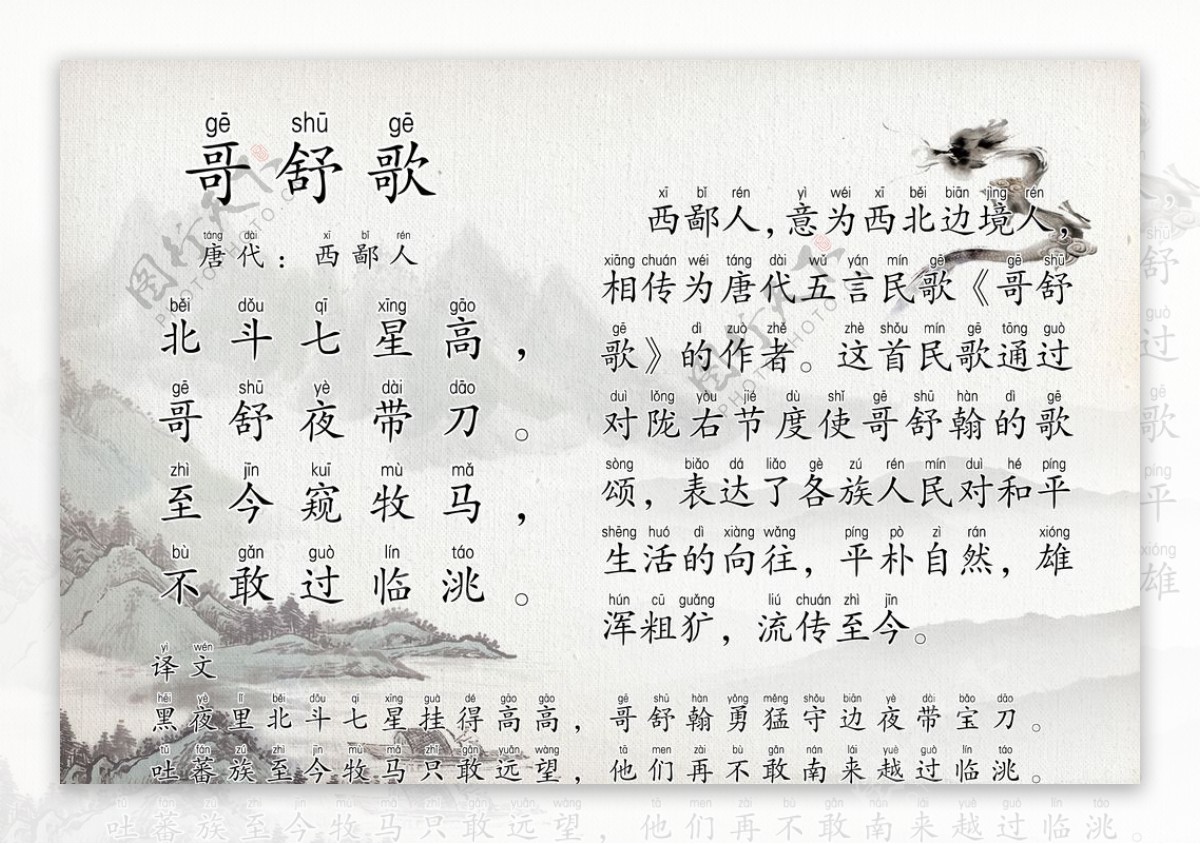 gē shū gē
哥舒歌
táng dài xī bǐ rén
唐代：西鄙人
běi dǒu qī xīng gāo
北斗七星高，
gē shū yè dài dāo
哥舒夜带刀。
zhì jīn kuī mù mǎ
至今窥牧马，
bù gǎn guò lín táo
不敢过临洮。
xī bǐ rén yì wéi xī běi biān jìng rén
西鄙人，意为西北边境人，
xiāng chuán wéi táng dài wǔ yán mín gē gē shū
相传为唐代五言民歌《哥舒
gē dì zuò zhě zhè shǒu mín gē tōng guò
歌》的作者。这首民歌通过
duì lǒng yòu jié dù shǐ gē shū hàn dì gē
对陇右节度使哥舒翰的歌
sòng biǎo dá liǎo gè zú rén mín duì hé píng
颂，表达了各族人民对和平
shēng huó dì xiàng wǎng píng pò zì rán xióng
生活的向往，平朴自然，雄
hún cū guǎng liú chuán zhì jīn
浑粗犷，流传至今。
yì wén
译文
hēi yè lǐ běi dǒu qi xīng guà dé gāo gāo gē shū hàn yǒng měng shǒu biān yè dài bǎo dāo
黑夜里北斗七星挂得高高，哥舒翰勇猛守边夜带宝刀。
tǔ fán zú zhì jin mù mǎ zhǐ gǎn yuǎn wàng tā men zài bù gǎn nán lái yuè guò lín táo
吐蕃族至今牧马只敢远望，他们再不敢南来越过临洮。
舒
过
gē
歌
píng
平
xióng
雄
tǔ fán zú zhì jin mù mǎ zhǐ gǎn yuǎn wàng tā men zài bù gǎn nán lái yuè guò lín táo
吐蕃族至今牧马只敢远望，他们再不敢南来越过临洮。
图行天下
PHOTOPHOTO
图行天下
PHOTOPHOTO